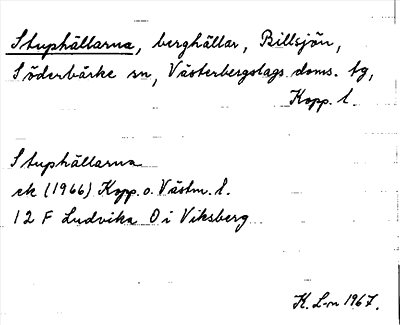 Stuphällarna, berghällar, Billsjön,
Söderbärke sn, Västerbergslags doms. tg,
Kopp. l.
Stuphällarna
ek (1966) Kopp. o. Västm. l.
12 F Ludvika O i Viksberg
K. L-n 1967.